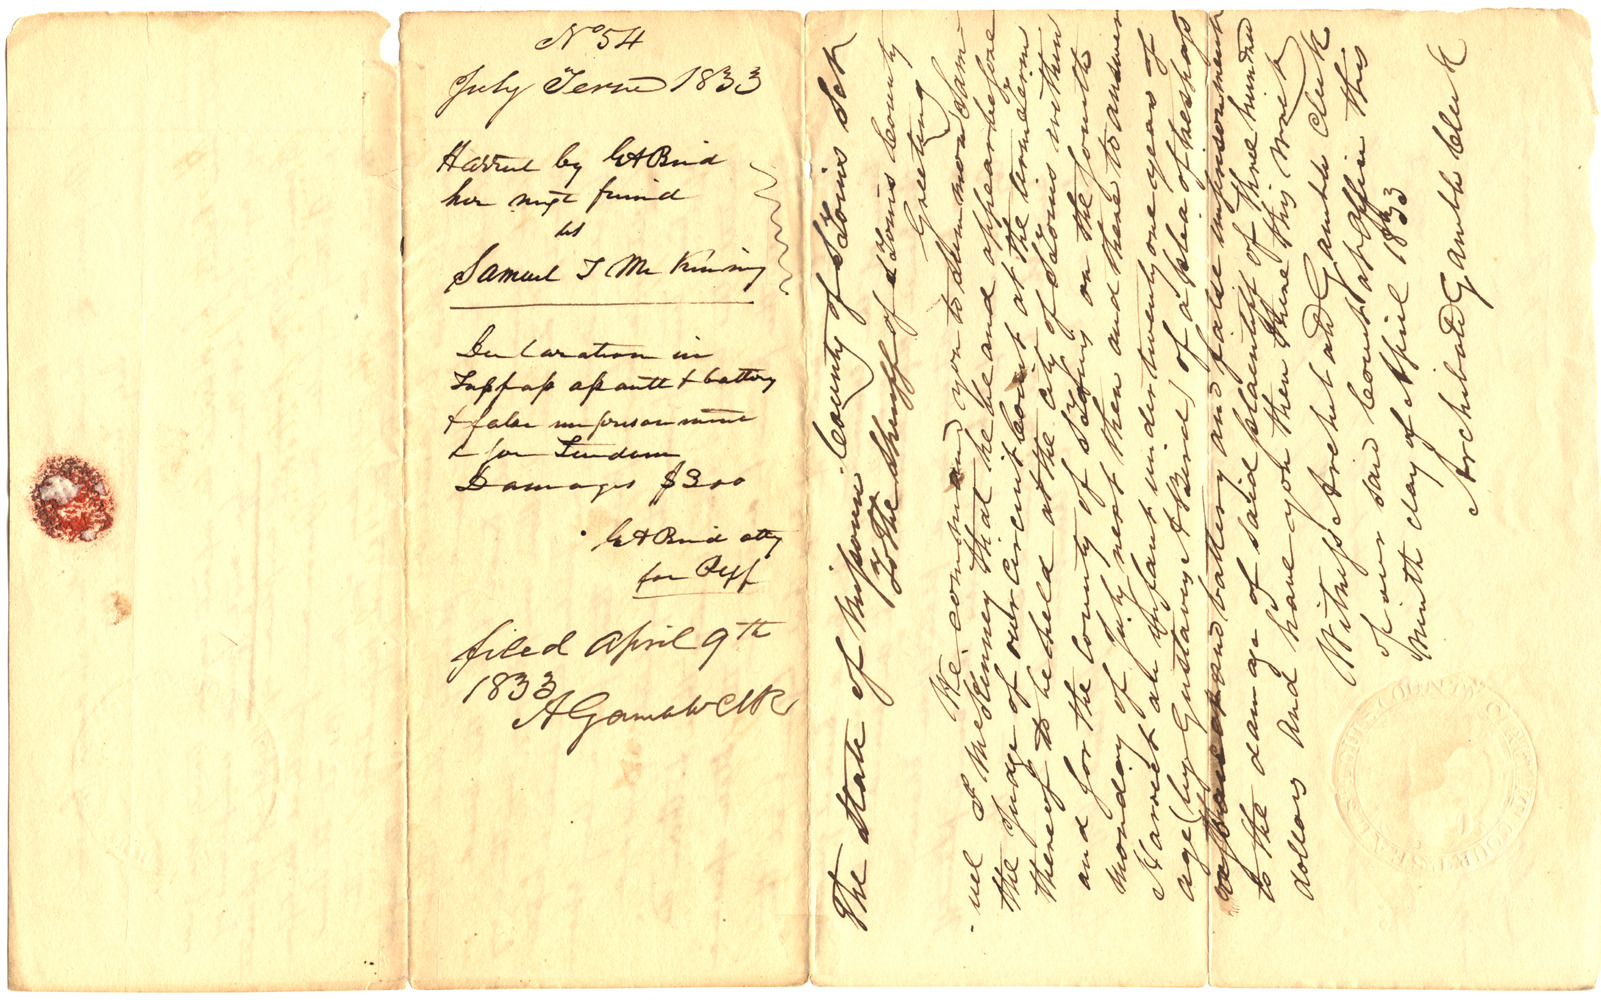 No 54
July Term 1833
Harriet by G A Bird
her next friend
vs
Samuel T McKinney
Declaration in
Trespass assault & battery
& false imprisonment
& for freedom
Damages $300
G A Bird atty
for Plff
filed April 9th
1833
A Gamble Clk
The State of Missouri County of St Louis Sct
To the Sheriff of St Louis County
Greeting
We command you to Summon Sam-
uel T McKinney that he be and appear before
the Judge of our circuit court at the term
thereof to be held at the city of St Louis within
and for the county of St Louis on the fourth
monday of July next then and there to answer
Harriet an infant under twenty one years of
age (by Gustavus A Bird) of a plea of trespass
assault and battery and false imprisonment
to the damage of said plaintiff of three hundred
dollars And have you then there this writ
Witness Archibald Gamble Clerk
of our said Court at office this
ninth day of April 1833
Archibald Gamble Clerk
ST LOUIS COUNTY CIRCUIT COURT SEAL